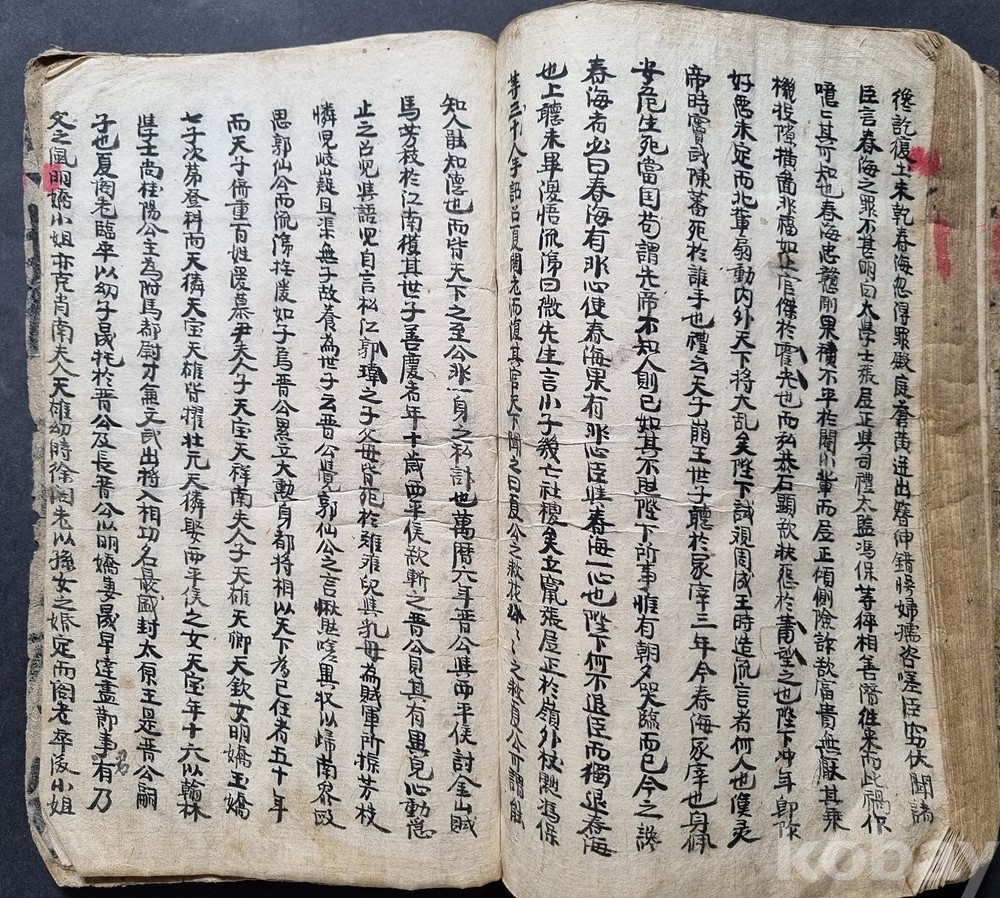 訖復土未乾春海忽得罪嚴庭蒼黃迸出簪紳錯愕婦孺咨嗟臣窃伏聞諸
臣言春海之罪不甚明白太學士張居正與司禮太監馮保等稱相善潛往來而此
噫亡其可知也春海忠戇剛果積不平於閹小輩而居正傾側險詖欲富貴無厭其乘
機投隙搆禍如上官傑於霍光也而弘恭石顯於蕭望之也陛下冲年卽阼
好惡未定而北輩扇動內外天下將大亂矣陛下誠視周成王時造流言者何人也漢灵
帝時竇武陳蕃死於誰手也禮云天子崩王世子聽於冢宰三年今春海冢宰也身佩
安危生死當國苟謂先帝不知人則已如其不然陛下所事惟有朝夕哭臨而已今之讒
春海者必曰春海有非心使春海果有非心臣與春海一心也陛下何不退臣而獨退春海
也上聽未畢澘悟流涕曰微先生言小子幾亡社稷矣立竄張居正於嶺外杖馮保
等三十人手詔召夏閣老而復其官天下聞之曰夏公之救花公之救夏公可謂能
知人能知德也而皆天下之至公非一身之私討也萬曆六年晋公與西平侯討金山賊
馬芳枝於江南獲其世子善慶者年十歲西平侯欲斬之晋公見其有異見心動急
止之召兒與語兒自言松江郭瑋之子父母皆死於難兒與乳母為賊軍所掠芳枝
憐兒岐嶷且渠無子故養為世子云晋公覺郭仙公之言愀然嗟異收以歸南容
思郭仙公而流涕撫愛如子焉晋公累立大勳身都將相以天下為己任者五十年
而天子倚重百姓愛慕尹夫人子天宝天祥南夫人子天雄天卿天欽女明嬌玉嬌
七子次第登科而天獜天宝天雄皆擢壯元天獜娶西平侯之女天宝年十六以翰林
學士尚桂陽公主為附馬都尉才兼文武出將入相功名最盛封太原王是晋公嗣
子也夏閣老臨卒以幼子晟托於晋公及長晋公以明嬌妻晟早達盡節事有乃
父之風明嬌小姐亦克肖南夫人天雄幼時徐閣老以孫女之婚定而閣老卒後小姐